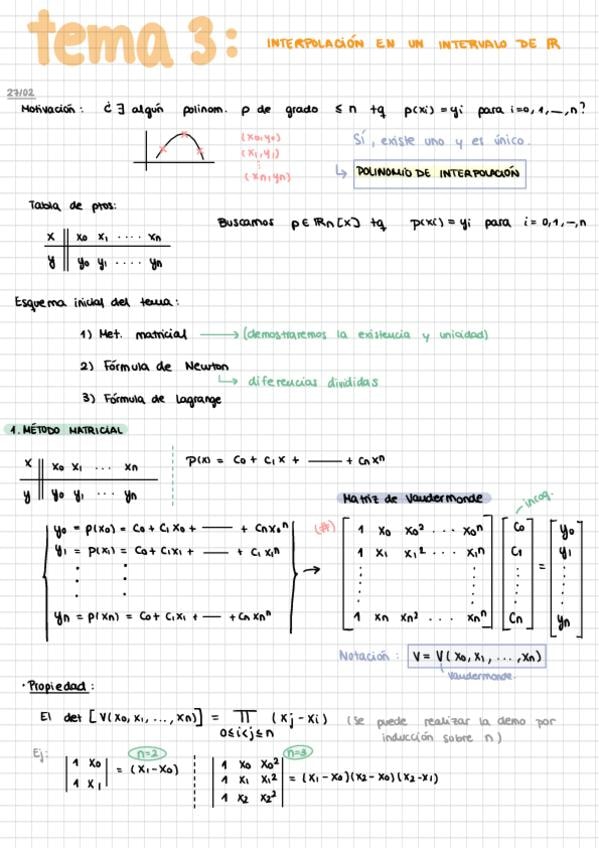 tema 3: INTERPOLACIÓN EN UN INTERVALO DE ℝ
27/02
Motivación: ¿∃ algún polinom. p de grado ≤ n tq p(xi) = yi para i=0,1,—,n?
(x0,y0)
(x1,y1)
⋮
(xn,yn)
Sí, existe uno y es único.
↳ POLINOMIO DE INTERPOLACIÓN
Tabla de ptos:
Buscamos p ∈ ℝn[x] tq p(xi) = yi para i = 0,1,—,n
x || x0 x1 ···· xn
y || y0 y1 ···· yn
Esquema inicial del tema:
1) Met. matricial → (demostraremos la existencia y unicidad)
2) Fórmula de Newton
↳ diferencias divididas
3) Fórmula de Lagrange
1. MÉTODO MATRICIAL
x || x0 x1 ··· xn
y || y0 y1 ··· yn
p(x) = C0 + C1 x + —— + Cn xⁿ
Matriz de Vandermonde
incog.
y0 = p(x0) = C0 + C1 x0 + —— + Cn x0ⁿ
y1 = p(x1) = C0 + C1 x1 + —— + C1 x1ⁿ
⋮ ⋮
yn = p(xn) = C0 + C1 x1 + — + Cn xnⁿ
→
(#)
1 x0 x0² ··· x0ⁿ C0 y0
1 x1 x1² ··· x1ⁿ C1 = y1
⋮ ⋮ ⋮ ⋮
1 xn xn² ··· xnⁿ Cn yn
Notación: V = V(x0, x1, ..., xn)
Vandermonde
· Propiedad:
El det [V(x0, x1, ..., xn)] = ∏ (xj - xi) (se puede realizar la demo por
0≤i<j≤n inducción sobre n)
Ej: n=2 n=3
|1 x0| |1 x0 x0²|
|1 x1| = (x1-x0) |1 x1 x1²| = (x1-x0)(x2-x0)(x2-x1)
|1 x2 x2²|